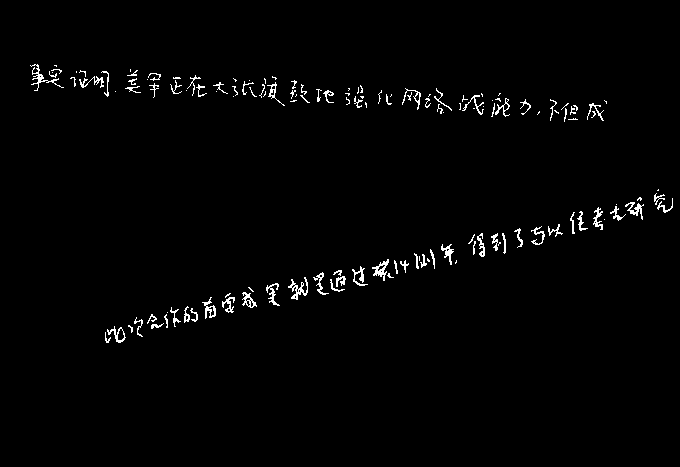 事实证明,美军正在大张旗鼓地强化网络战能力,不但成
此次合作的首要成果就是通过碳14测年,得到了与以往考古研究